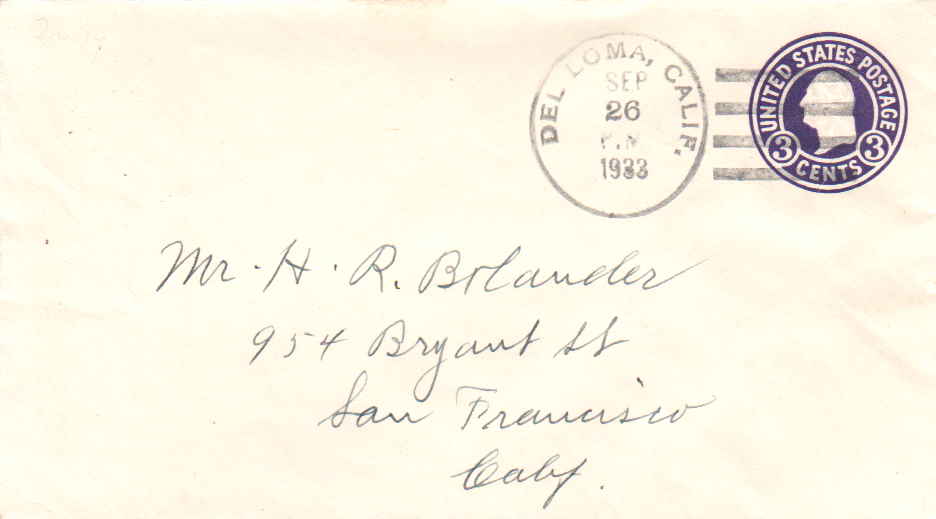 DEL LOMA, CALIF.
SEP
26
P.M
1933
UNITED STATES POSTAGE
3 CENTS 3
Mr. H. R. Bolander
954 Bryant St
San Francisco
Calif.